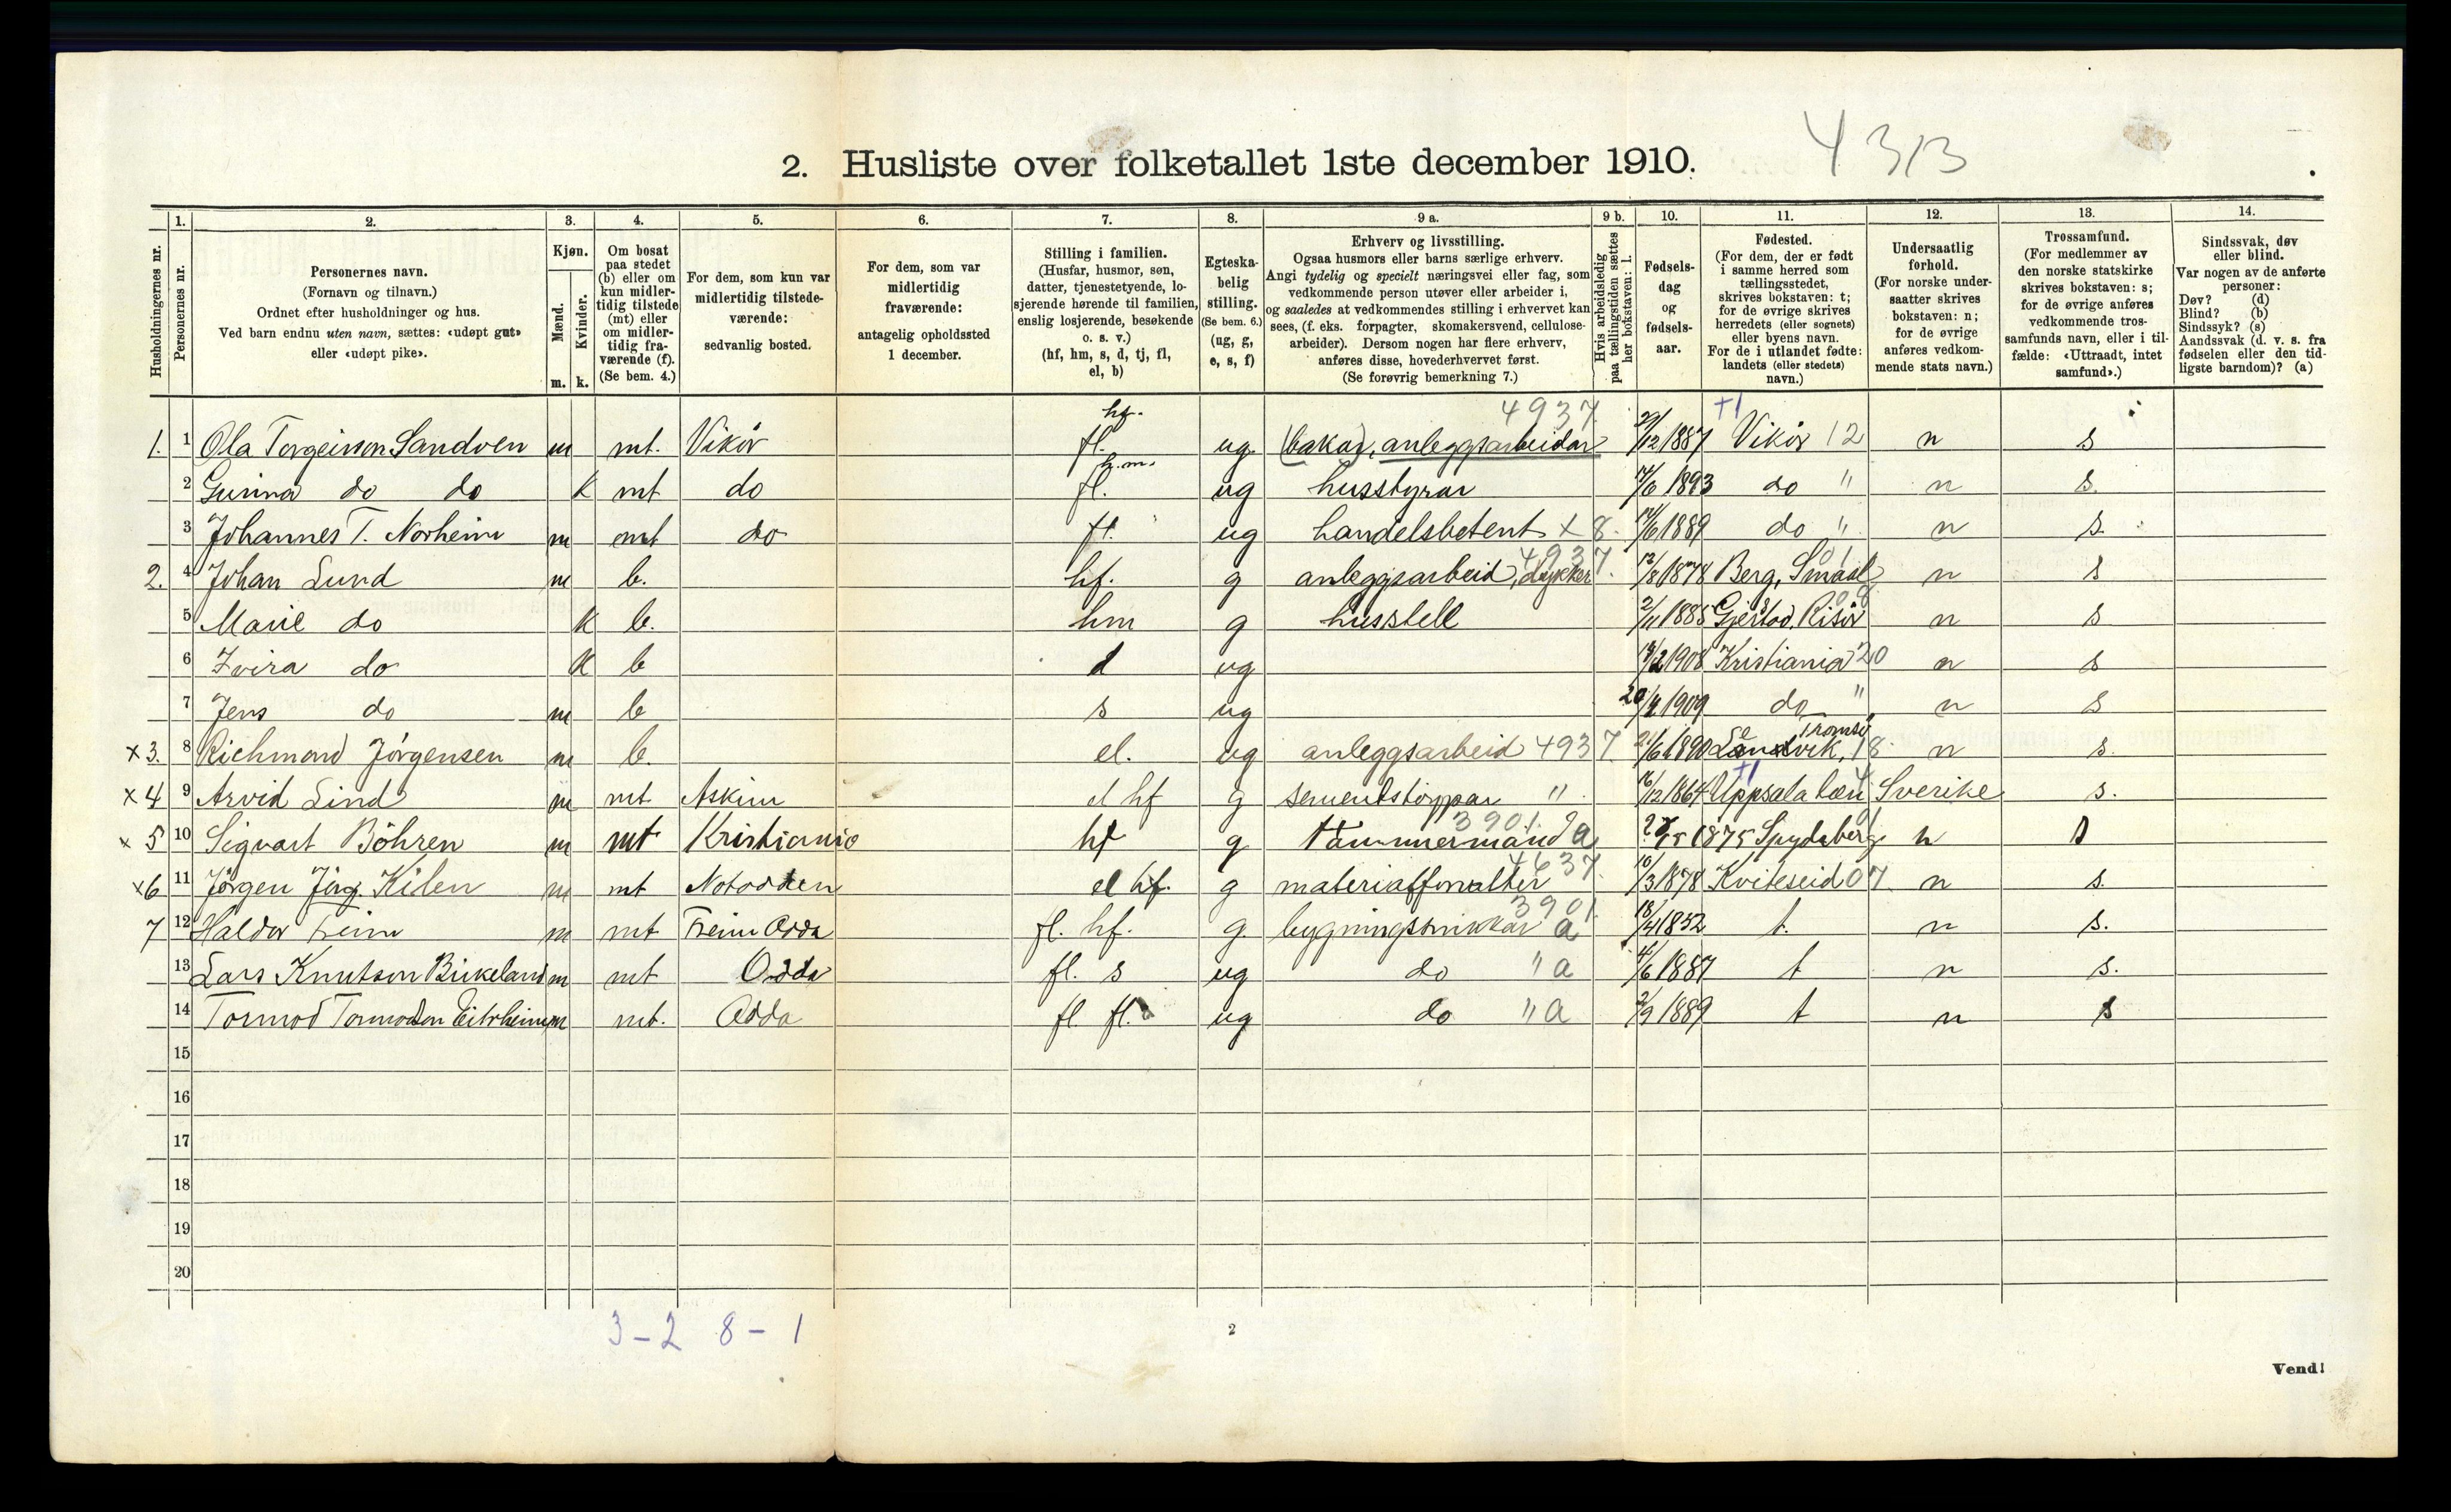 2. Husliste over folketallet 1ste december 1910. 4313
Husholdningernes nr. | 1. Personernes nr. | 2. Personernes navn. (Fornavn og tilnavn.) Ordnet efter husholdninger og hus. Ved barn endnu uten navn, sættes: «udøpt gut» eller «udøpt pike». | 3. Kjøn. Mænd. m. Kvinder. k. | 4. Om bosat paa stedet (b) eller om kun midlertidig tilstede (mt) eller om midlertidig fraværende (f). (Se bem. 4.) | 5. For dem, som kun var midlertidig tilstedeværende: sedvanlig bosted. | 6. For dem, som var midlertidig fraværende: antagelig opholdssted 1 december. | 7. Stilling i familien. (Husfar, husmor, søn, datter, tjenestetyende, losjerende hørende til familien, enslig losjerende, besøkende o. s. v.) (hf, hm, s, d, tj, fl, el, b) | 8. Egteskabelig stilling. (Se bem. 6.) (ug, g, e, s, f) | 9 a. Erhverv og livsstilling. Ogsaa husmors eller barns særlige erhverv. Angi tydelig og specielt næringsvei eller fag, som vedkommende person utøver eller arbeider i, og saaledes at vedkommendes stilling i erhvervet kan sees, (f. eks. forpagter, skomakersvend, cellulosearbeider). Dersom nogen har flere erhverv, anføres disse, hovederhvervet først. (Se forøvrig bemerkning 7.) | 9 b. Hvis arbeidsledig paa tællingstiden sættes her bokstaven: l. | 10. Fødselsdag og fødselsaar. | 11. Fødested. (For dem, der er født i samme herred som tællingsstedet, skrives bokstaven: t; for de øvrige skrives herredets (eller sognets) eller byens navn. For de i utlandet fødte: landets (eller stedets) navn.) | 12. Undersaatlig forhold. (For norske undersaatter skrives bokstaven: n; for de øvrige anføres vedkommende stats navn.) | 13. Trossamfund. (For medlemmer av den norske statskirke skrives bokstaven: s; for de øvrige anføres vedkommende trossamfunds navn, eller i tilfælde: «Uttraadt, intet samfund».) | 14. Sindssvak, døv eller blind. Var nogen av de anførte personer: Døv? (d) Blind? (b) Sindssyk? (s) Aandssvak (d. v. s. fra fødselen eller den tidligste barndom)? (a)
1. 1 Ola Torgeirson Sandven m mt. Vikör fl. hf. ug (bakar), anleggsarbeidar 4937 29/12 1887 +1 Vikör 12 n s
2 Gurina do do k mt do fl. h.m. ug husstyrar 14/6 1893 do " n s.
3 Johannes T. Norheim m mt do fl. ug handelsbetent x 8. 14/6 1889 do " n s.
2. 4 Johan Lund m b. hf. g anleggsarbeid, dykker 4937. 13/8 1878 Berg, Smaal 01 n s
5 Marie do k b. hm g husstell 2/11 1885 Gjerstad, Risör n s
6 Zvira do k b d ug 1908 Kristiania 20 n s
7 Jens do m b s ug 1909 do " n s
x3. 8 Richmond Jörgensen m b. el. ug anleggsarbeid 4937. 21/6 1890 Lenvik, Tromsö 18 n s.
x4 9 Arvid Lind m mt Askim el hf g sementstöypar " 16/12 1864 +1 Uppsala læn Sverike s.
x5 10 Sigvart Böhren m mt Kristiania hf g tämmermand a 3901 1875 Spydeberg n s
x6 11 Jørgen Jörg. Kilen m mt Notodden el hf. g materialforvalter 4637. 10/3 1878 Kviteseid 07 n s.
7 12 Haldor Freim m mt Freim Odda fl. hf. g. bygningssnikkar a 3901. 18/4 1852 t. n s.
13 Lars Knutson Birkeland m mt Odda fl. s ug do " a 4/6 1887 t n s.
14 Tormod Tormodson Eitrheim m mt. Odda fl. fl. ug do " a 2/9 1889 t n s
15
16
17
18
19
20
3-2 8-1
2
Vend!